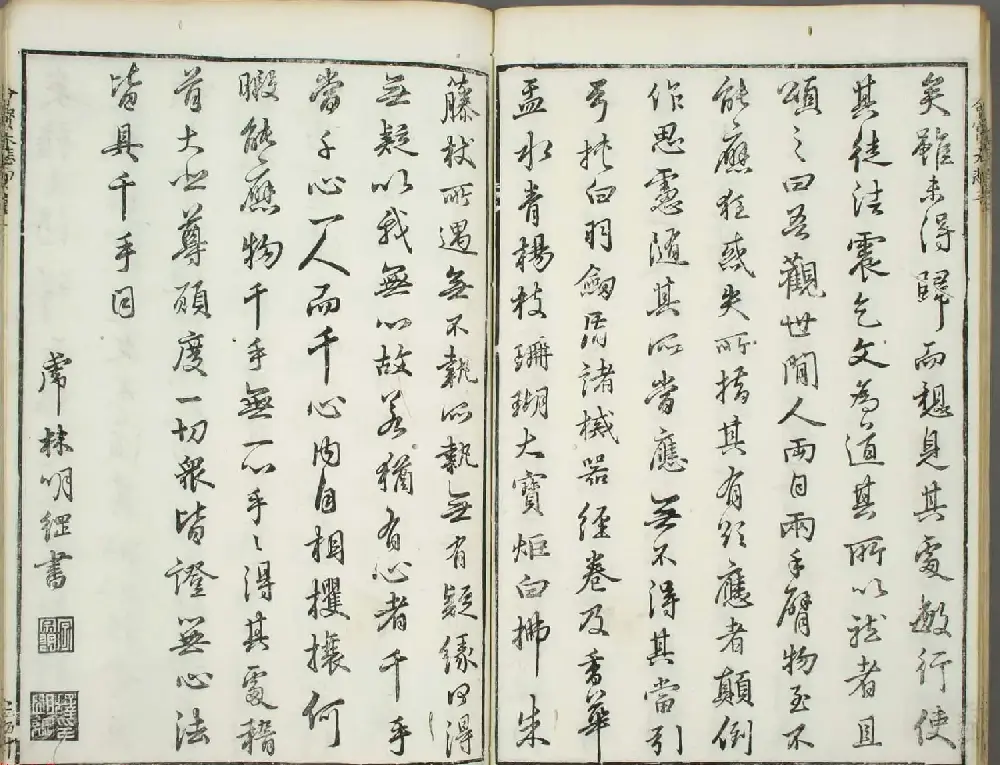 矣雖未得歸而想見其處敏行使
其徒法震乞文為道其所以然者且
頌之曰吾觀世間人兩目兩手臂物至不
能應狂惑失所措其有欲應者顛倒
作思慮隨其所當應無不得其當引
弓挾白羽劔盾諸械器經卷及香華
盂水青楊枝珊瑚大寶炬白拂朱
藤杖所遇無不執所執無有疑緣何得
無疑以我無心故若猶有心者千手
當千心一人而千心內自相攫攘何
暇能應物千手無一心手〻得其處稽
首大悲尊願度一切衆皆證無心法
皆具千手目
虎林明綱書